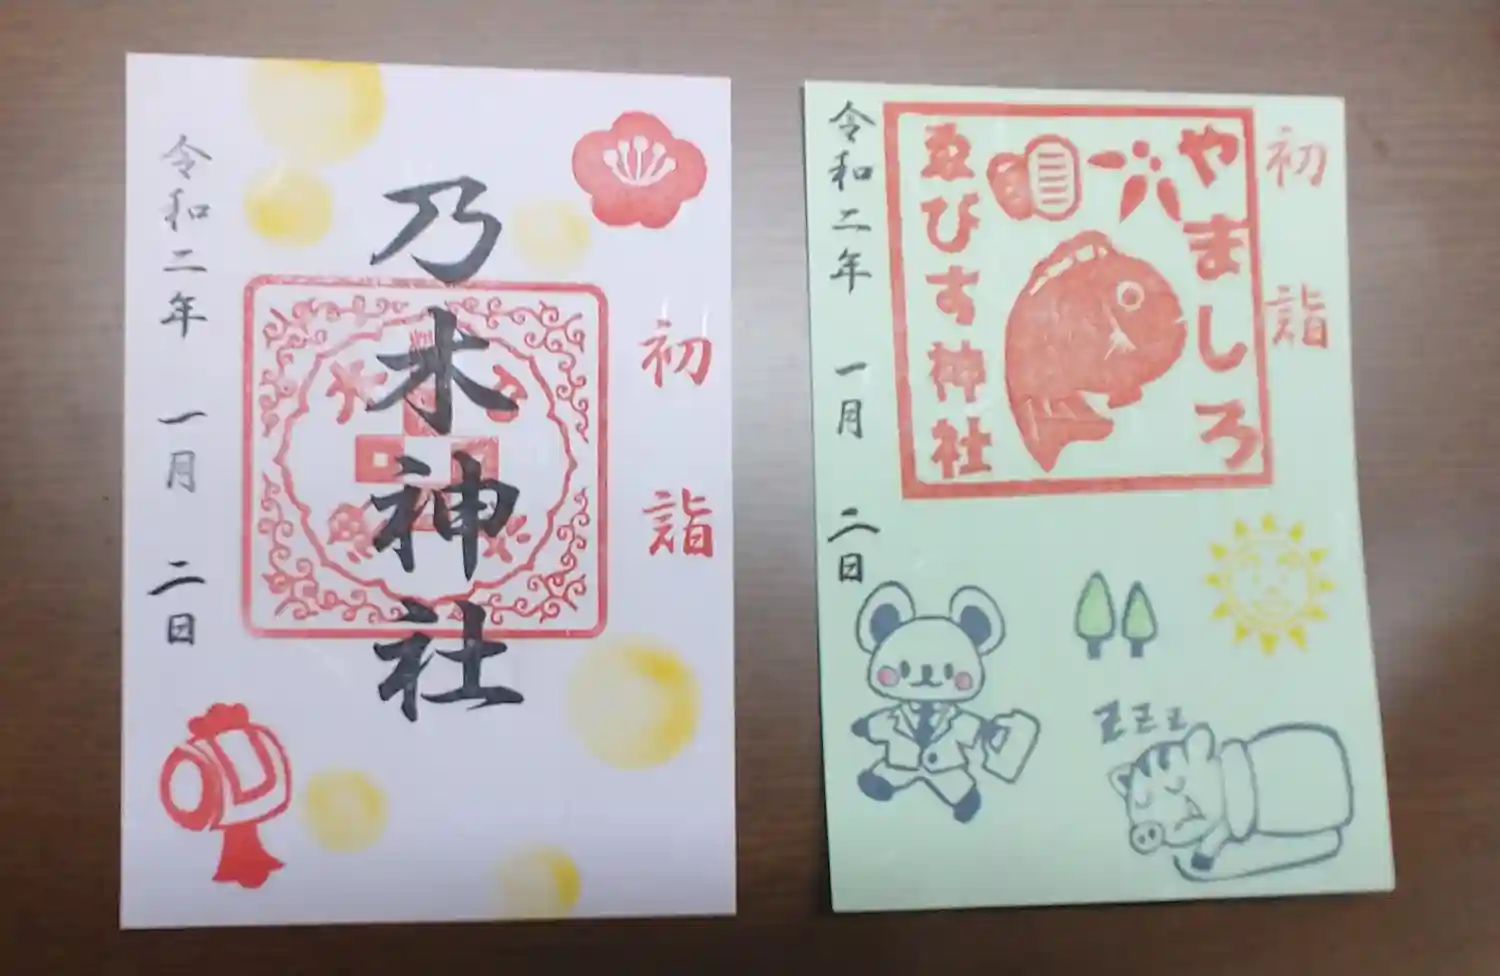 初詣
乃木神社
令和二年 一月 二日
初詣
やましろ
ゑびす神社
令和二年 一月 二日
zzz